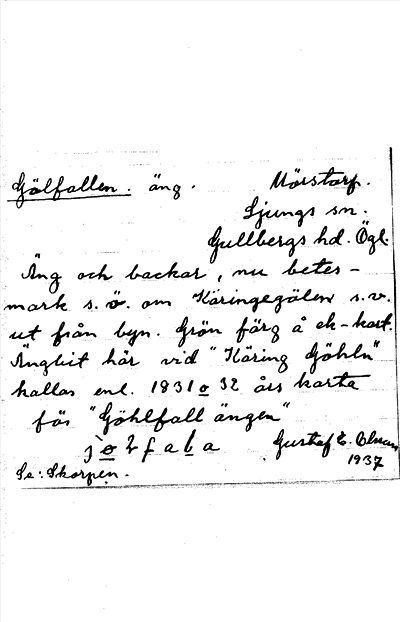 Gölfallen. äng. Mörstorp.
Ljungs sn.
Gullbergs hd. Ögl.
Äng och backar, nu betes-
mark s.ö. om Käringegölen s.v.
ut från byn. Grön färg å ek-kart.
Ängbit här vid "Käring Göhln"
kallas enl. 1831 o 32 års karta
för "Göhlfall ängen"
Gustaf E. Olsson
1937
Se: Skorpen.